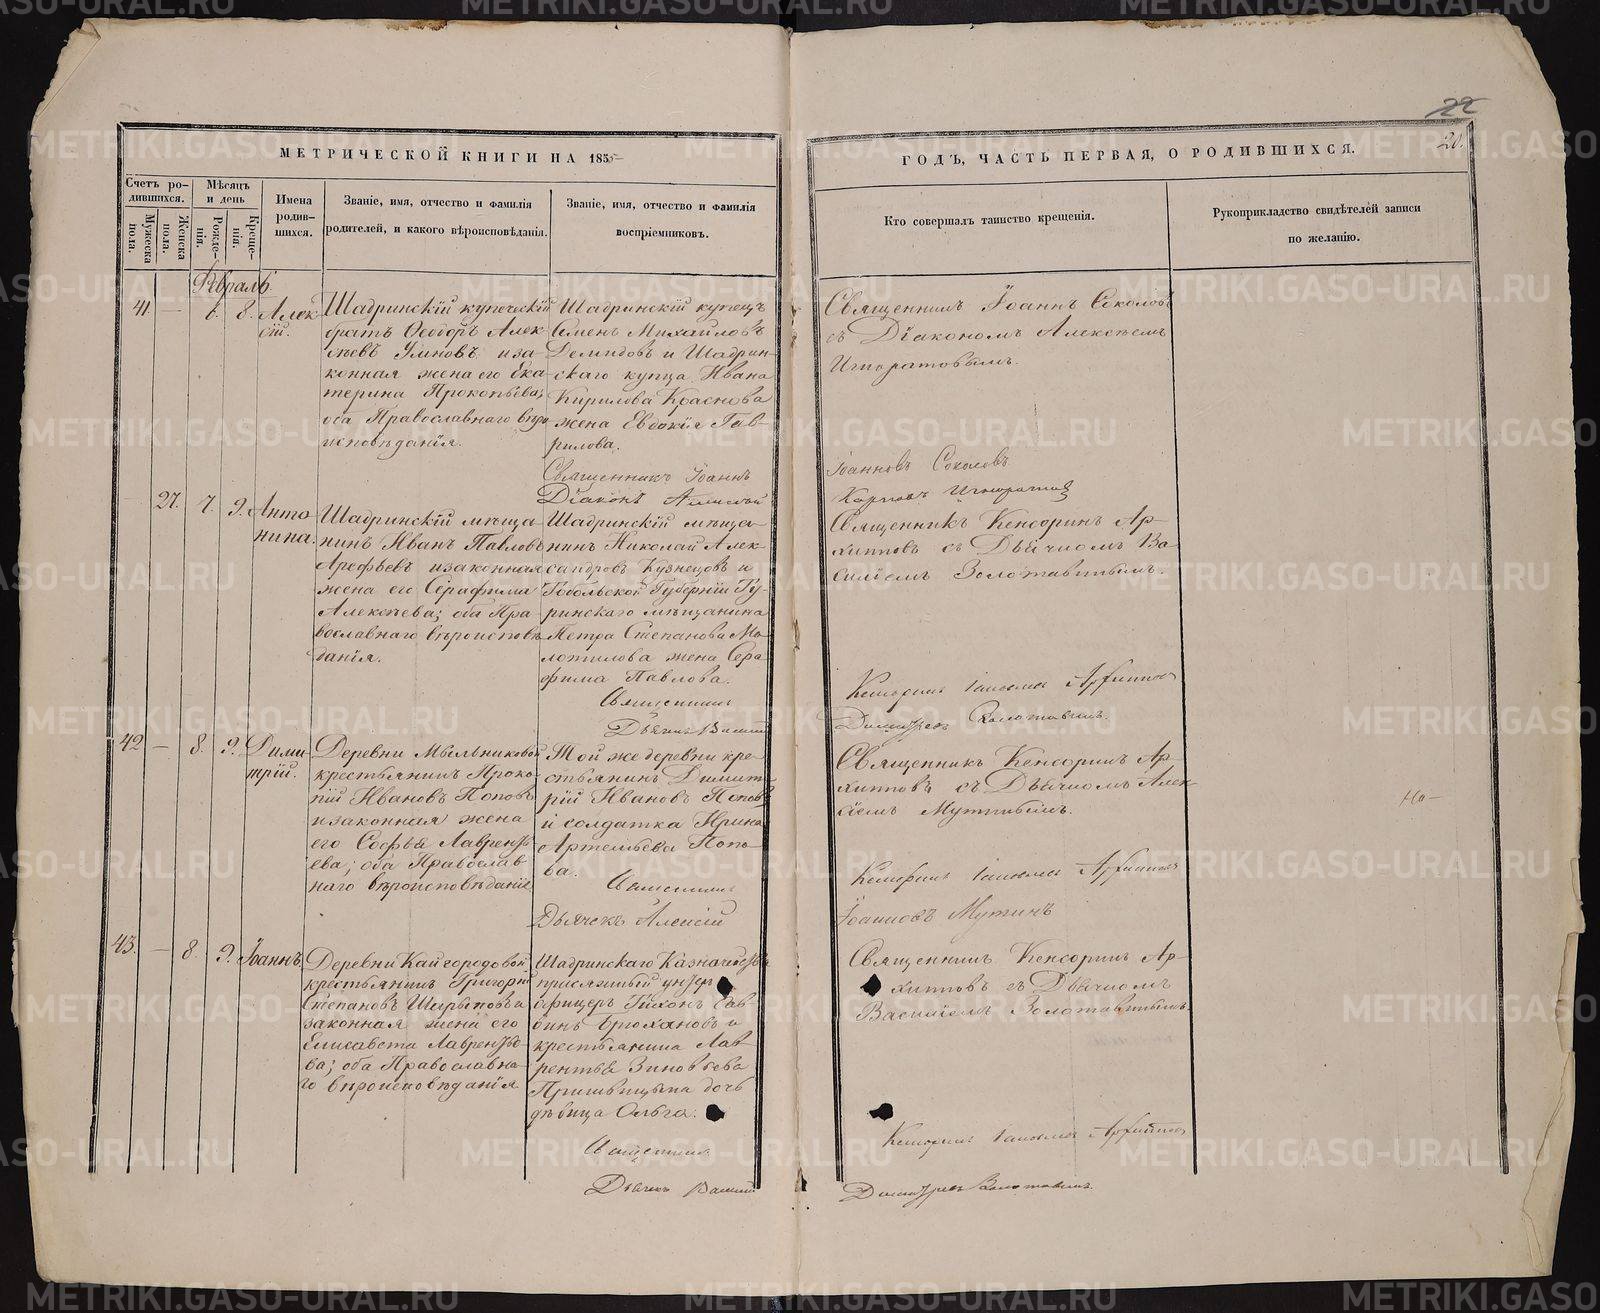 22
20.
МЕТРИЧЕСКОЙ КНИГИ НА 1855
ГОДЪ, ЧАСТЬ ПЕРВАЯ, О РОДИВШИХСЯ.
Счетъ ро-
дившихся.
Мужеска
пола.
Женска
пола.
Мѣсяцъ
и день
Рожде-
нія.
Креще-
нія.
Имена
родив-
шихся.
Званіе, имя, отчество и фамилія
родителей, и какого вѣроисповѣданія.
Званіе, имя, отчество и фамилія
воспріемниковъ.
Кто совершалъ таинство крещенія.
Рукоприкладство свидѣтелей записи
по желанію.
Февраль
41. — 6. 8. Алек-
сій.
Шадринскій купеческій
братъ Ѳеодоръ Алек-
сѣевъ Уминовъ иза-
конная жена его Ека-
терина Прокопьева;
оба Православнаго вѣро
исповѣданія.
Шадринскій купецъ
Семенъ Михайловъ
Демидовъ и Шадрин-
скаго купца Ивана
Кирилова Краснова
жена Евдокія Гав-
рилова.
Священникъ Іоаннъ Соколовъ
съ Діакономъ Алексѣемъ
Игноратовымъ.
Священникъ Іоаннъ
Іоанновъ Соколовъ
Діаконъ Алексѣй
Карповъ Игноратовъ
27. 7. 9. Анто-
нина.
Шадринскій мѣща-
нинъ Иванъ Павловъ
Арефьевъ изаконная
жена его Серафима
Алексѣева; оба Пра-
вославнаго вѣроисповѣ-
данія.
Шадринскій мѣща-
нинъ Николай Алек-
сандровъ Кузнецовъ и
Тобольской Губерніи Ту-
ринскаго мѣщанина
Петра Степанова Мо-
лотилова жена Сера-
фима Павлова.
Священникъ Кенсоринъ Ар-
хипповъ съ Дьячкомъ Ва-
силіемъ Золотавинымъ.
Священникъ
Дьячекъ Василій
Золотавинъ.
42 — 8. 9. Дими-
трій.
Деревни Мыльниковой
крестьянинъ Проко-
пій Ивановъ Поповъ
изаконная жена
его Софья Лаврентъ-
ева; оба Православ-
наго вѣроисповѣданія
Той же деревни кре-
стьянинъ Димит-
рій Ивановъ Поповъ
и солдатка Ирина
Артемьева Попо-
ва.
Священникъ Кенсоринъ Ар-
хипповъ съ Дьячкомъ Алек-
сіемъ Мутинымъ.
Священникъ
Дьячекъ Алексій
Іоанновъ Мутинъ
43. — 8. 9. Іоаннъ.
Деревни Кайгородовой
крестьянинъ Григорій
Степановъ Шарыповъ и
законная жена его
Елисавета Лаврентье-
ва; оба Православна-
го вѣроисповѣданія
Шадринскаго Казначейства
присяжный унтеръ
офицеръ Тихонъ Сав-
бинъ Брюхановъ и
крестьянина Лав-
рентья Зиновьева
Пришвицына дочь
дѣвица Ольга.
Священникъ Кенсоринъ Ар-
хипповъ съ Дьячкомъ
Василіемъ Золотавинымъ.
Священникъ
Дьячекъ Василій
Золотавинъ.
METRIKI.GASO-URAL.RU